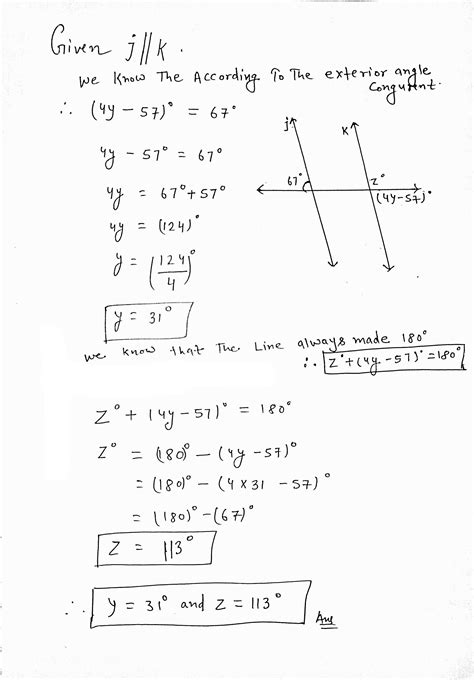 Given j || k.
We Know The According To The exterior angle
Congurent.
∴ (4y - 57)° = 67°
4y - 57° = 67°
4y = 67° + 57°
4y = (124)°
y = (124/4)°
y = 31°
j
k
67°
z°
(4y-57)°
We know that The Line always made 180°
∴ z° + (4y - 57)° = 180°
z° + (4y - 57)° = 180°
z° = (180)° - (4y - 57)°
= (180)° - (4 × 31 - 57)°
= (180)° - (67)°
z = 113°
∴ y = 31° and z = 113°
Ans